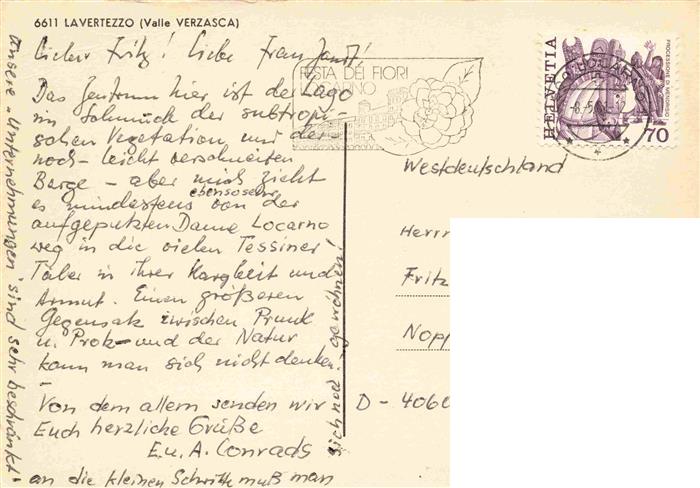 6611 LAVERTEZZO (Valle VERZASCA)
Lieber Fritz! Liebe Frau
Das Zentrum hier ist der Lago
im Schmuck der subtropi-
schen Vegetation und der-
noch- leicht verschneiten
Berge - aber mich zieht
es mindestens ebensosehr von der
aufgeputzten Dame Locarno
weg in die vielen Tessiner
Täler in ihrer Kargheit und
Armut. Einen größeren
Gegensatz zwischen Prunk
u. Protz- und der Natur
kann man sich nicht denken!
-
Von dem allem senden wir
Euch herzliche Grüße
E. u. A. Conrads
Unsere "Unternehmungen" sind sehr beschränkt -
an die kleinen Schritte muß man
sich noch gewöhnen!
FESTA DEI FIORI
HELVETIA
PROCESSIONE DI MENDRISIO
70
Westdeutschland
Herrn
Fritz
Nopp
D - 4060